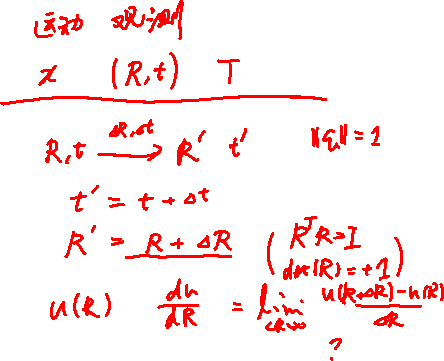 运动 观测
x (R,t) T
R,t ΔR,Δt → R' t' ||q|| = 1
t' = t + Δt
R' = R + ΔR (RᵀR=I det(R)=+1)
u(R) du/dR = lim ΔR→0 u(R+ΔR)-u(R)/ΔR
?